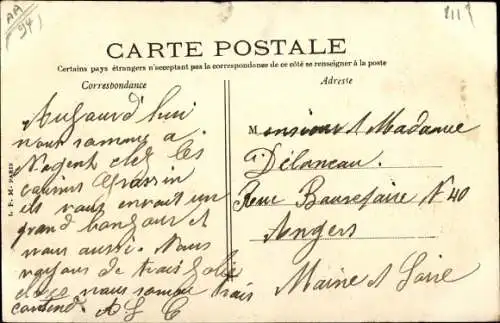 AA
94
211
CARTE POSTALE
Certains pays étrangers n'acceptant pas la correspondance de ce côté se renseigner à la poste
Correspondance
Adresse
L. P. M. PARIS
Aujourd'hui
nous sommes a
Nogent chez les
cousins
ils vous envoit un
grand bonjour et
nous aussi. Nous
voyons de trais jolie
choses nous somme trais
contend. A L C
Monsieur & Madame
Délaneau.
Rue N 40
Angers
Maine & Loire